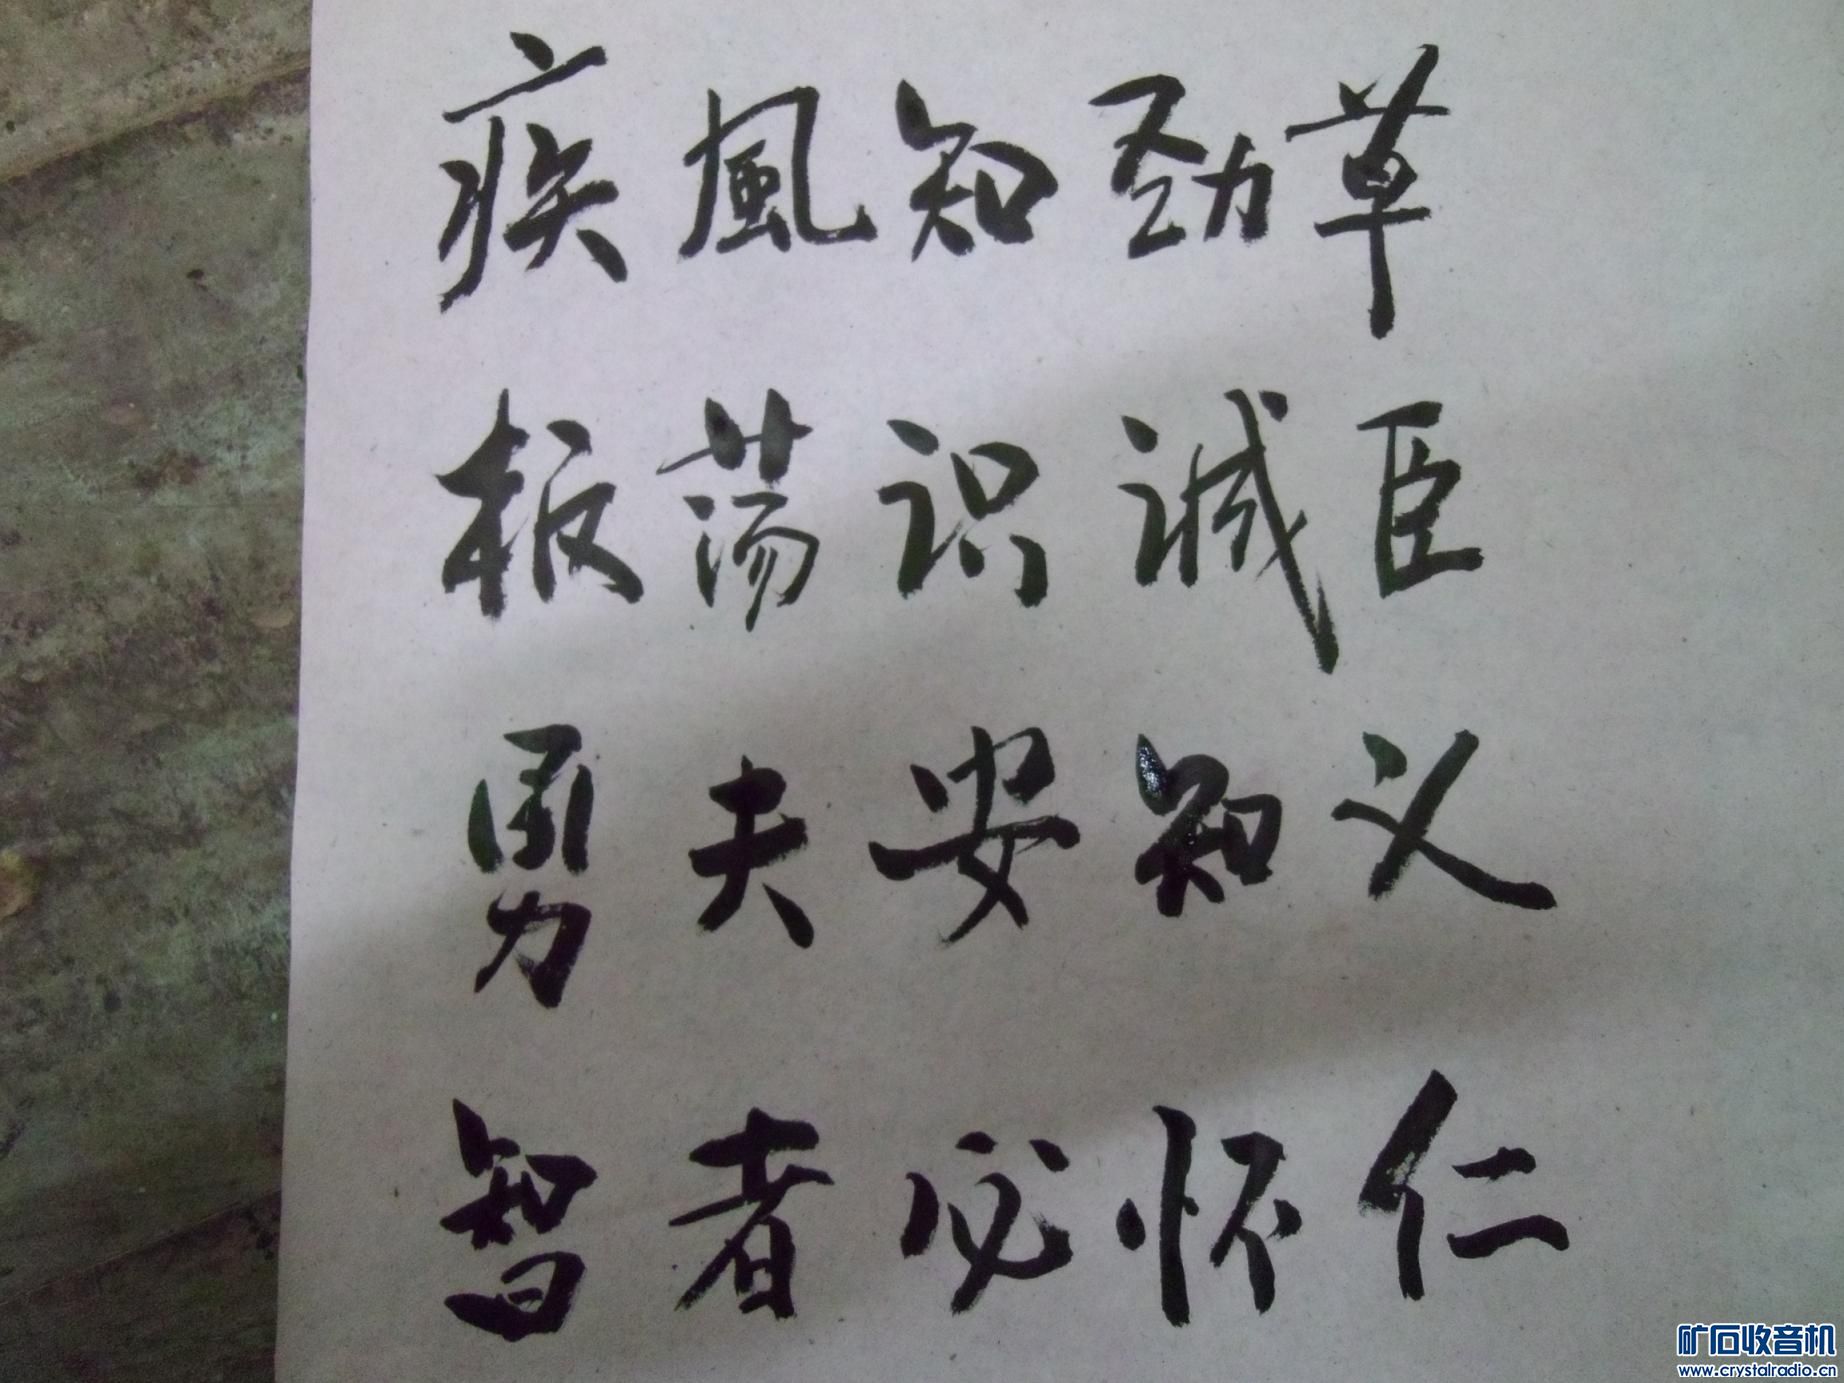 疾風知劲草
板荡识诚臣
勇夫安知义
智者必怀仁
矿石收音机
www.crystalradio.cn